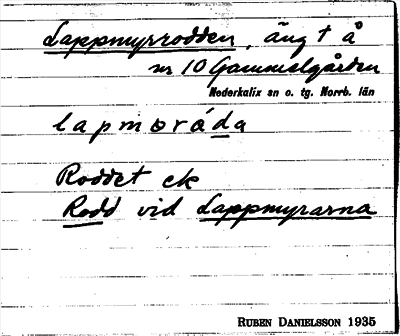 Lappmyrrodden, äng t å
nr 10 Gammelgården
Nederkalix sn o. tg. Norrb. län
lapmoráda
Roddet ek
Rodd vid Lappmyrarna
RUBEN DANIELSSON 1935